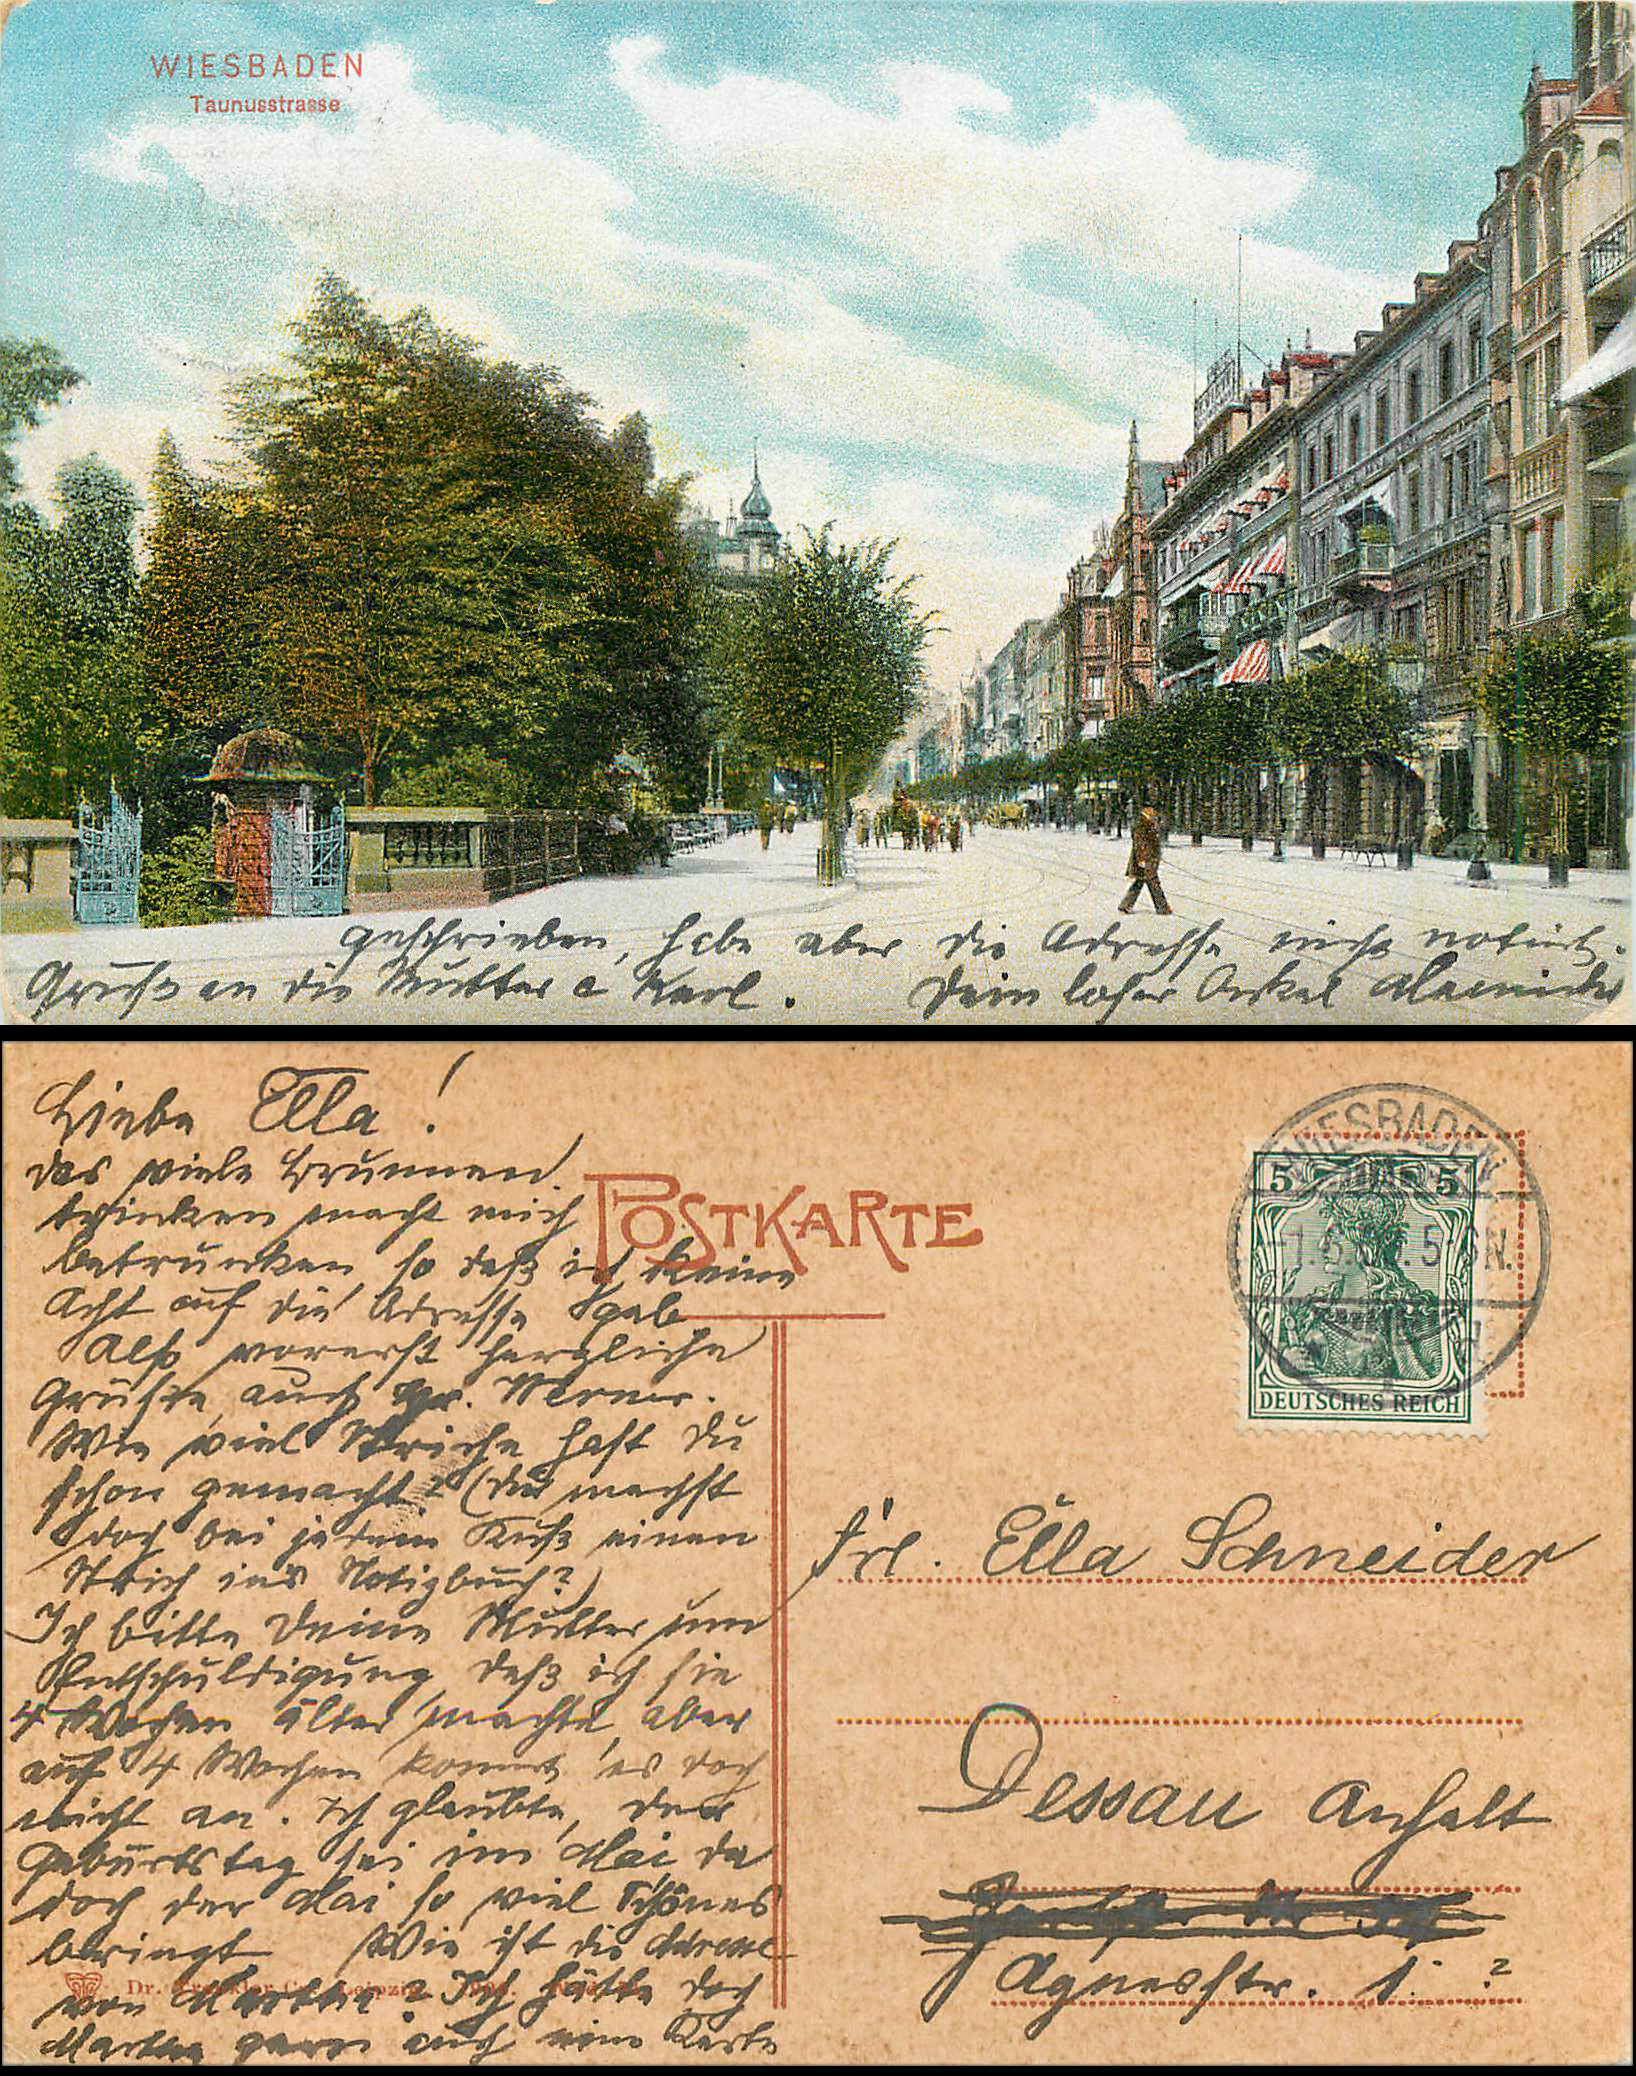 WIESBADEN
Taunusstrasse
geschrieben, habe aber die Adresse nicht notiert.
Gruß an die Mutter e Karl. Dein loser Onkel
Liebe Ella!
das viele Brunnen
trinken macht mich
betrunken, so daß ich keine
Acht auf die Adresse gab.
Also vorerst herzliche
Grüße, auch Hr. Werner.
Wie viel Striche hast Du
schon gemacht? (Du machst
doch bei jedem Kuß einen
Strich in's Notizbuch?)
Ich bitte Deine Mutter um
Entschuldigung, daß ich sie
4 Wochen älter machte, aber
auf 4 Wochen kommt es doch
nicht an. Ich glaubte, der
Geburtstag sei im Mai, da
doch der Mai so viel Schönes
bringt Wie ist die Adresse
von Martha? Ich hätte doch
Martha gern auch eine Karte
POSTKARTE
WIESBADEN
5 5
DEUTSCHES REICH
Frl. Ella Schneider
Dessau Anhalt
Agnesstr. 1. ?
Leipzig